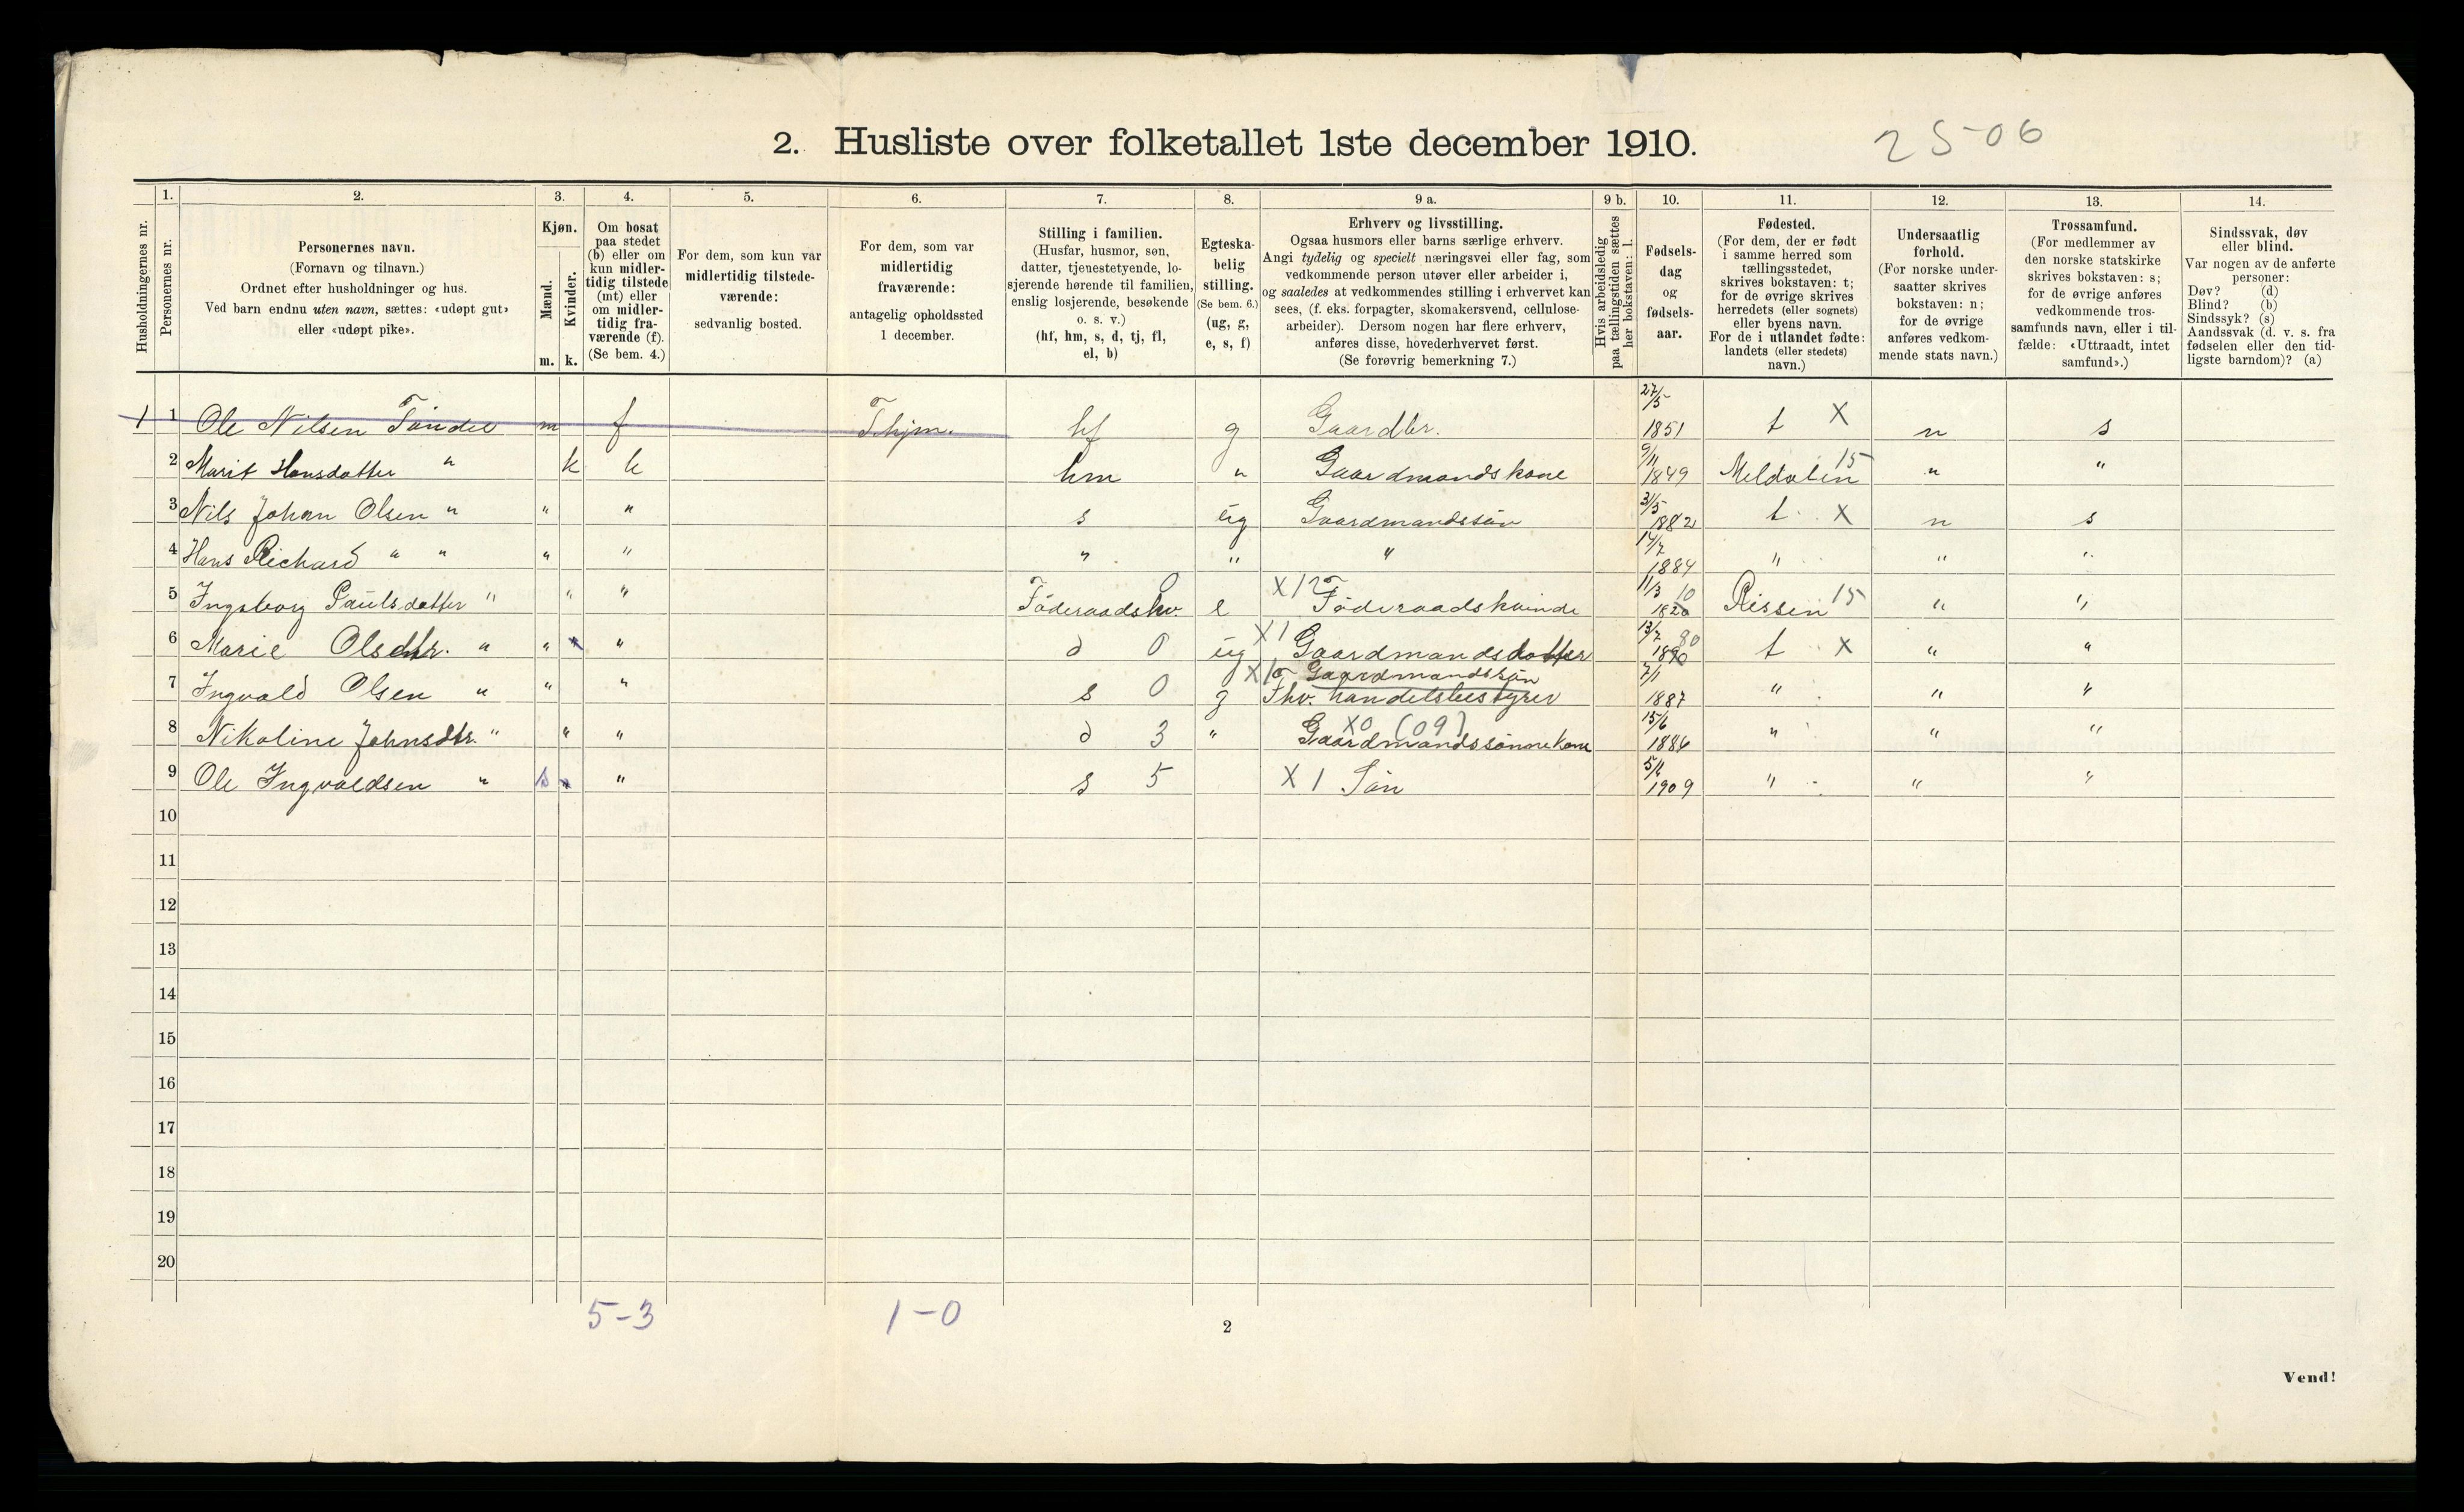 2. Husliste over folketallet 1ste december 1910.
25-06
1. 2. 3. 4. 5. 6. 7. 8. 9 a. 9 b. 10. 11. 12. 13. 14.
Husholdningernes nr.
Personernes nr.
Personernes navn.
(Fornavn og tilnavn.)
Ordnet efter husholdninger og hus.
Ved barn endnu uten navn, sættes: «udøpt gut»
eller «udøpt pike».
Kjøn.
Mænd.
Kvinder.
m. k.
Om bosat
paa stedet
(b) eller om
kun midler-
tidig tilstede
(mt) eller
om midler-
tidig fra-
værende (f).
(Se bem. 4.)
For dem, som kun var
midlertidig tilstede-
værende:
sedvanlig bosted.
For dem, som var
midlertidig
fraværende:
antagelig opholdssted
1 december.
Stilling i familien.
(Husfar, husmor, søn,
datter, tjenestetyende, lo-
sjerende hørende til familien,
enslig losjerende, besøkende
o. s. v.)
(hf, hm, s, d, tj, fl,
el, b)
Egteska-
belig
stilling.
(Se bem. 6.)
(ug, g,
e, s, f)
Erhverv og livsstilling.
Ogsaa husmors eller barns særlige erhverv.
Angi tydelig og specielt næringsvei eller fag, som
vedkommende person utøver eller arbeider i,
og saaledes at vedkommendes stilling i erhvervet kan
sees, (f. eks. forpagter, skomakersvend, cellulose-
arbeider). Dersom nogen har flere erhverv,
anføres disse, hovederhvervet først.
(Se forøvrig bemerkning 7.)
Hvis arbeidsledig
paa tællingstiden sættes
her bokstaven: l.
Fødsels-
dag
og
fødsels-
aar.
Fødested.
(For dem, der er født
i samme herred som
tællingsstedet,
skrives bokstaven: t;
for de øvrige skrives
herredets (eller sognets)
eller byens navn.
For de i utlandet fødte:
landets (eller stedets)
navn.)
Undersaatlig
forhold.
(For norske under-
saatter skrives
bokstaven: n;
for de øvrige
anføres vedkom-
mende stats navn.)
Trossamfund.
(For medlemmer av
den norske statskirke
skrives bokstaven: s;
for de øvrige anføres
vedkommende tros-
samfunds navn, eller i til-
fælde: «Uttraadt, intet
samfund».)
Sindssvak, døv
eller blind.
Var nogen av de anførte
personer:
Døv? (d)
Blind? (b)
Sindssyk? (s)
Aandssvak (d. v. s. fra
fødselen eller den tid-
ligste barndom)? (a)
1 1 Ole Nilsen Tøndel m f T.hjem. hf g Gaardbr. 27/5 1851 t X n s
2 Marit Hansdatter " k b hm " Gaardmandskone 9/11 1849 Meldalen 15 " "
3 Nils Johan Olsen " " " s ug Gaardmandssøn 31/5 1882 t X n s
4 Hans Richard " " " " " " " 14/7 1884 " " "
5 Ingeborg Paulsdatter " " " Föderaadskv. 0 e X12 Föderaadskvinde 11/3 1820 10 Rissen 15 " "
6 Marie Olsdtr. " " " " d 0 ug X1 Gaardmandsdatter 13/7 1890 80 t X " "
7 Ingvald Olsen " " " s 0 g X1 Gaardmandssøn
Fhv. handelsbestyrer 7/1 1887 " " "
8 Nikoline Johnsdtr. " " " d 3 " X0 (09) Gaardmandssønnekone 15/6 1886 " " "
9 Ole Ingvaldsen " " s 5 X 1 Søn 5/6 1909 " " "
10
11
12
13
14
15
16
17
18
19
20
5-3 1-0
2
Vend!